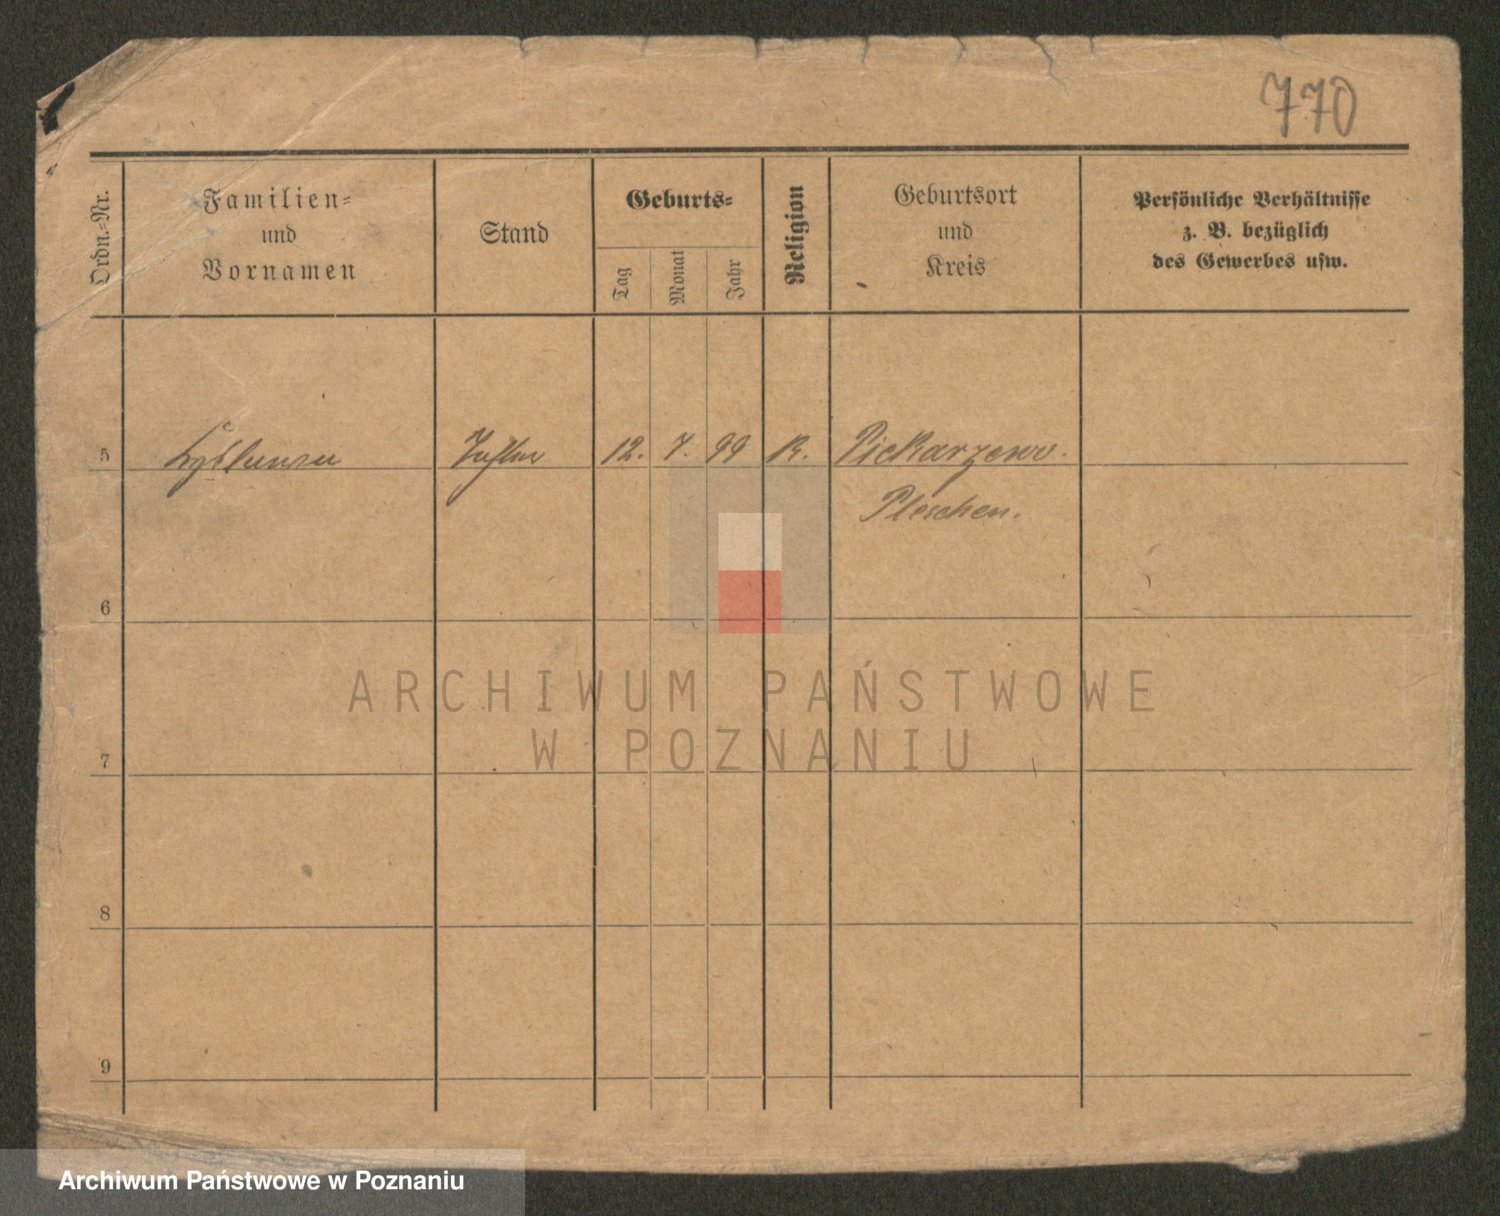 770
Ordn.-Nr.
Familien-
und
Vornamen
Stand
Geburts-
Tag
Monat
Jahr
Religion
Geburtsort
und
Kreis
Persönliche Verhältnisse
z. B. bezüglich
des Gewerbes usw.
5 12. 7. 99 K. Piekarzewo.
Pleschen.
6
7
8
9
ARCHIWUM PAŃSTWOWE
W POZNANIU
Archiwum Państwowe w Poznaniu